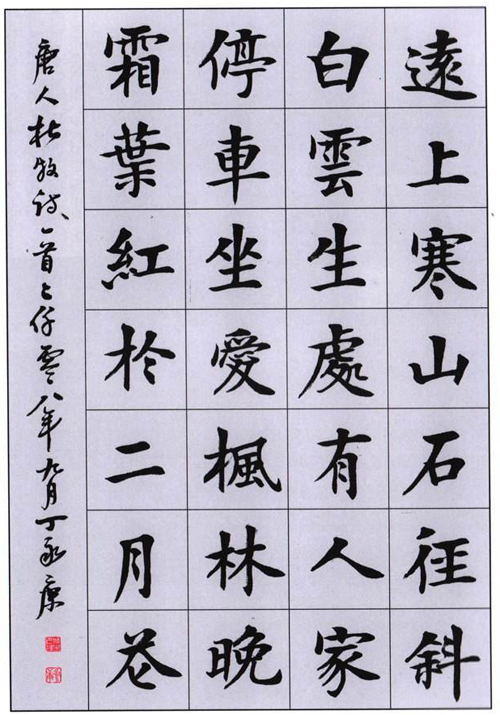 遠上寒山石徑斜
白雲生處有人家
停車坐愛楓林晚
霜葉紅於二月花
唐人杜牧詩一首 零八年九月丁 康